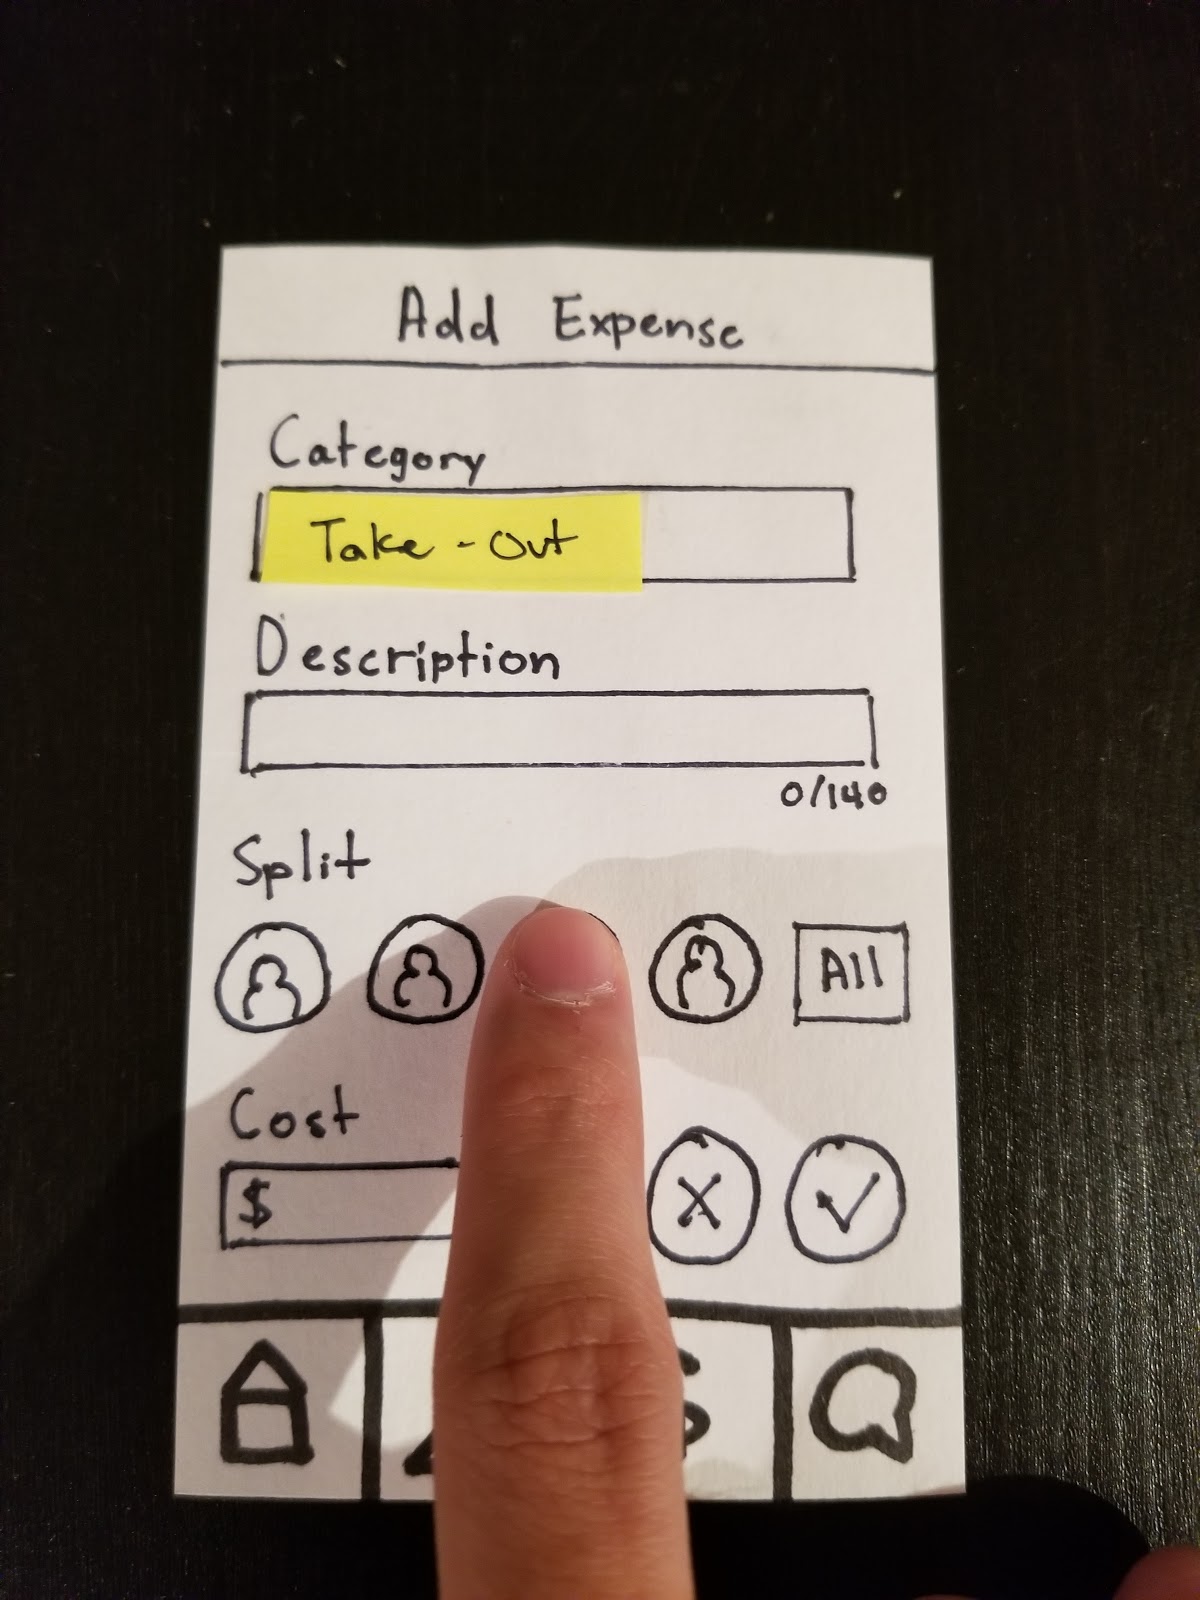 Add Expense
Category
Take-Out
Description
0/140
Split
All
Cost
$